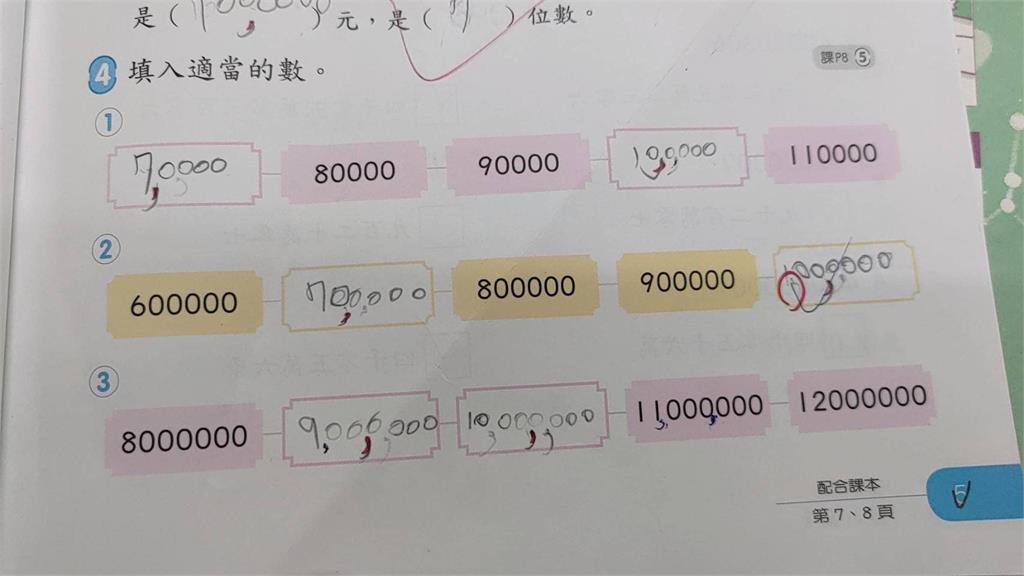 是( 1000000 )元，是( )位數。
4 填入適當的數。 課P8 ⑤
①
70,000 80000 90000 100,000 110000
②
600000 700,000 800000 900000 1000,000
③
8000000 9,000,000 10,000,000 11,000,000 12000000
配合課本
第7、8頁
5